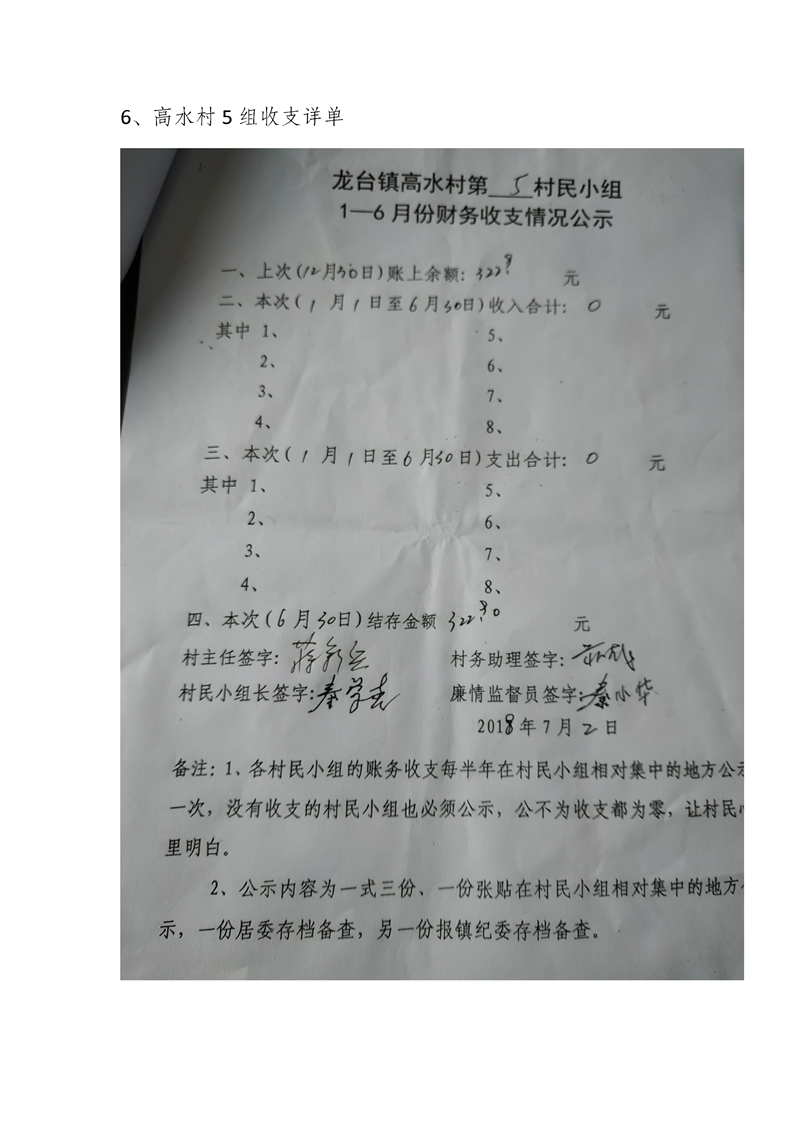 6、高水村 5 组收支详单
龙台镇高水村第 5 村民小组
1—6 月份财务收支情况公示
一、上次(12月30日)账上余额: 元
二、本次( 1 月 1 日至 6 月30日)收入合计: 0 元
其中 1、 5、
2、 6、
3、 7、
4、 8、
三、本次( 1 月 1 日至 6 月30日)支出合计: 0 元
其中 1、 5、
2、 6、
3、 7、
4、 8、
四、本次(6 月 30日)结存金额 元
村主任签字: 村务助理签字:
村民小组长签字:秦学志 廉情监督员签字:秦小华
2018 年 7 月 2 日
备注: 1、各村民小组的账务收支每半年在村民小组相对集中的地方公示
一次，没有收支的村民小组也必须公示，公不为收支都为零，让村民心
里明白。
2、公示内容为一式三份、一份张贴在村民小组相对集中的地方
示，一份居委存档备查，另一份报镇纪委存档备查。